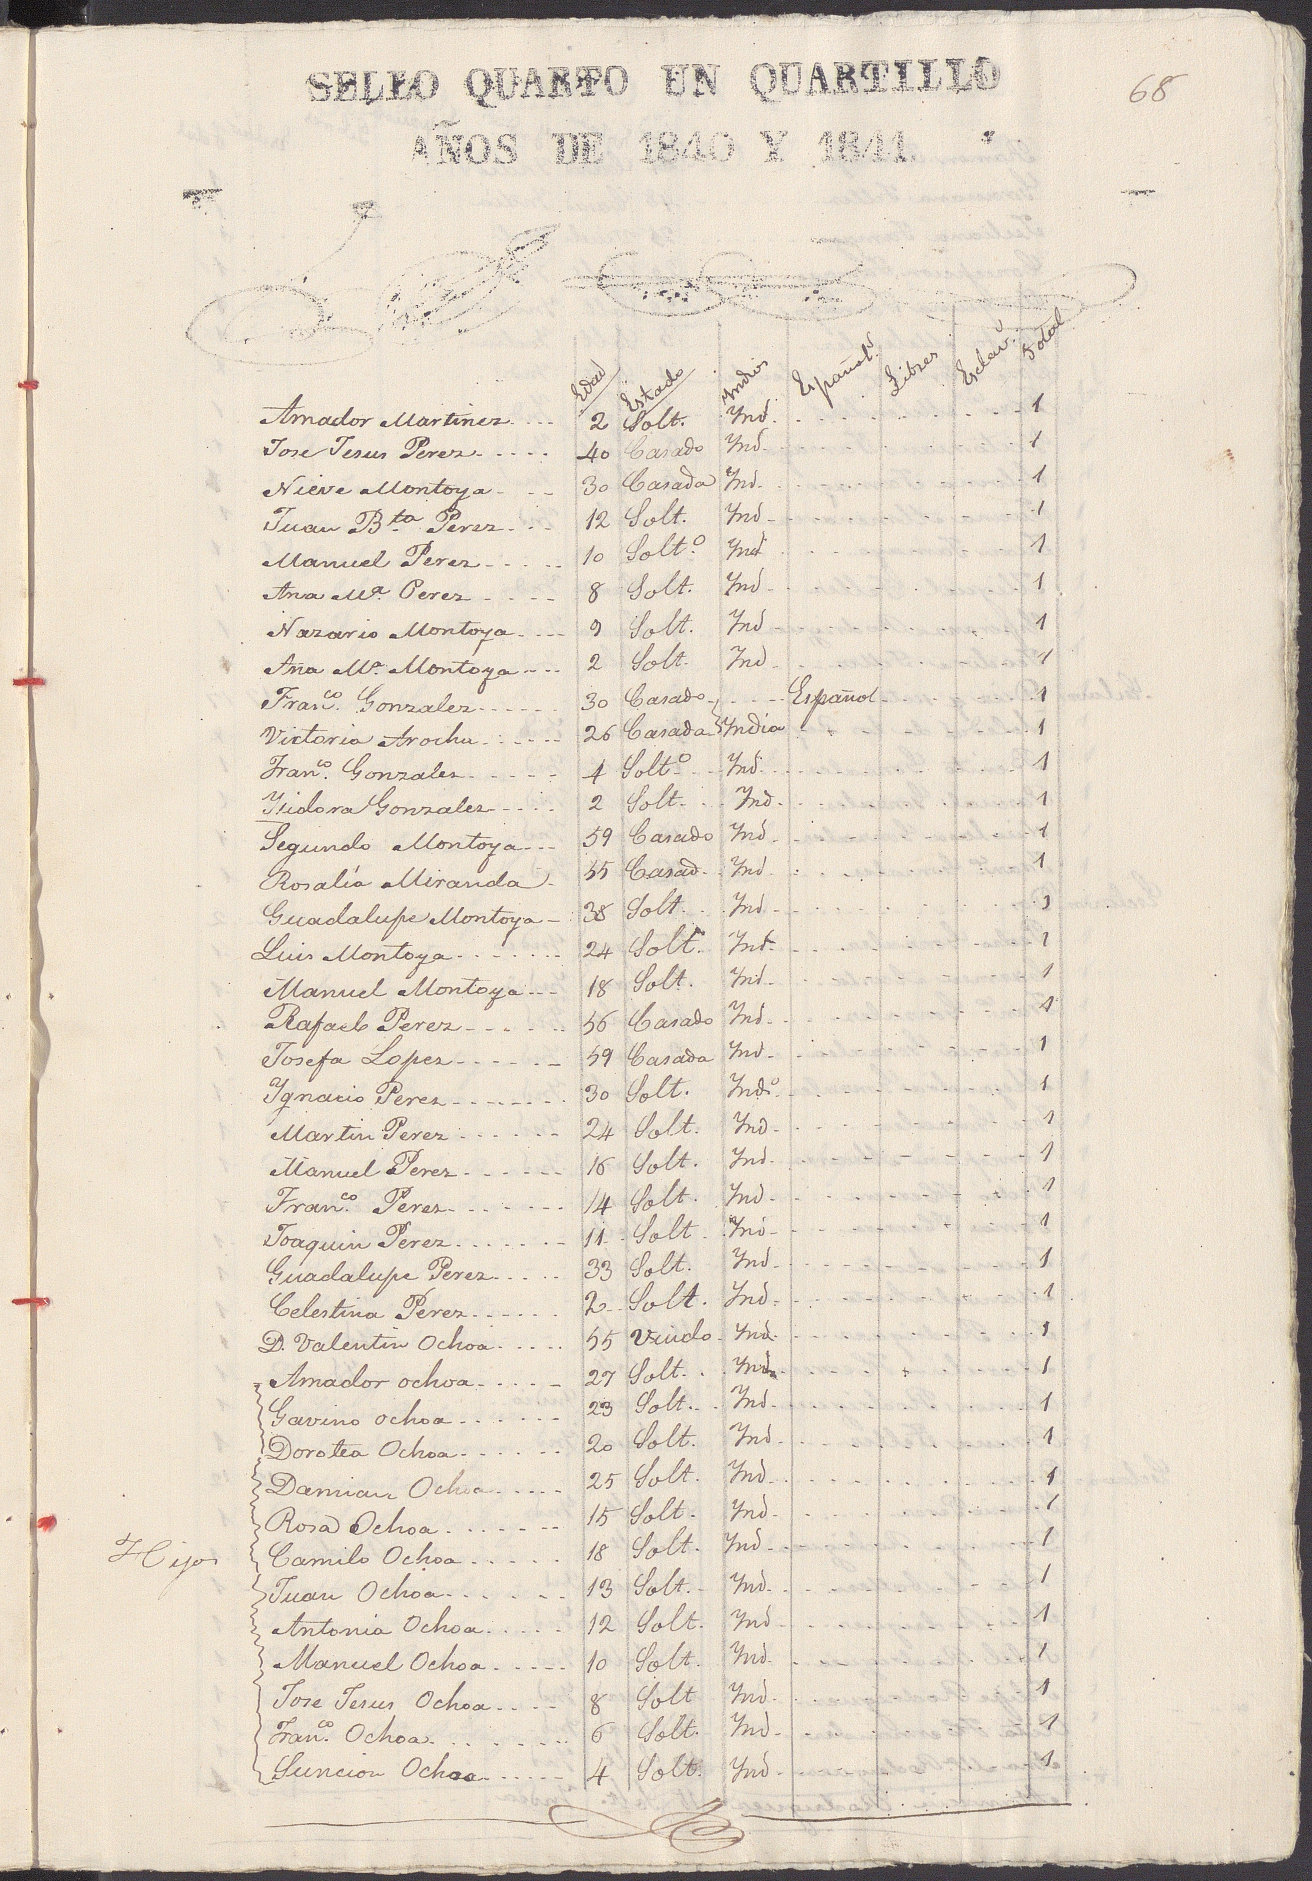 SELLO QUARTO UN QUARTILLO
68
AÑOS DE 1840 Y 1841.
Edad Estado Yndios Españols. Libres Esclavs. Total
Amador Martinez 2 Solt. Ynd. 1
Jose Jesus Perez 40 Casado Ynd. 1
Nieve Montoya 30 Casada Ynd. 1
Juan Bta. Perez 12 Solt. Ynd 1
Manuel Perez 10 Solto. Ynd 1
Ana Ma. Perez 8 Solt. Ynd. 1
Nazario Montoya 9 Solt. Ynd 1
Ana Ma. Montoya 2 Solt. Ynd. 1
Franco. Gonzalez 30 Casado Español 1
Victoria Arocha 26 Casada Yndia 1
Franco. Gonzales 4 Solto. Ynd. 1
Ysidora Gonzalez 2 Solt. Ynd. 1
Segundo Montoya 59 Casado Ynd. 1
Rosalía Miranda 55 Casad. Ynd. 1
Guadalupe Montoya 38 Solt. Ynd 1
Luis Montoya 24 Solt. Ynd. 1
Manuel Montoya 18 Solt. Ynd. 1
Rafael Perez 56 Casado Ynd. 1
Josefa Lopez 59 Casada Ynd. 1
Ygnacio Perez 30 Solt. Yndo. 1
Martin Perez 24 Solt. Ynd. 1
Manuel Perez 16 Solt. Ynd. 1
Franco. Perez 14 Solt. Ynd. 1
Joaquin Perez 11 Solt Ynd. 1
Guadalupe Perez 33 Solt. Ynd. 1
Celestina Perez 2 Solt. Ynd. 1
D. Valentin Ochoa 55 Viudo Ynd. 1
Amador ochoa 27 Solt. Ynd. 1
Gavino ochoa 23 Solt. Ynd. 1
Dorotea Ochoa 20 Solt. Ynd. 1
Damian Ochoa 25 Solt. Ynd. 1
Rosa Ochoa 15 Solt. Ynd. 1
Hijos Camilo Ochoa 18 Solt. Ynd. 1
Juan Ochoa 13 Solt. Ynd. 1
Antonia Ochoa 12 Solt. Ynd 1
Manuel Ochoa 10 Solt. Ynd. 1
Jose Jesus Ochoa 8 Solt Ynd. 1
Franco. Ochoa 6 Solt. Ynd. 1
Suncion Ochoa 4 Solt. Ynd. 1